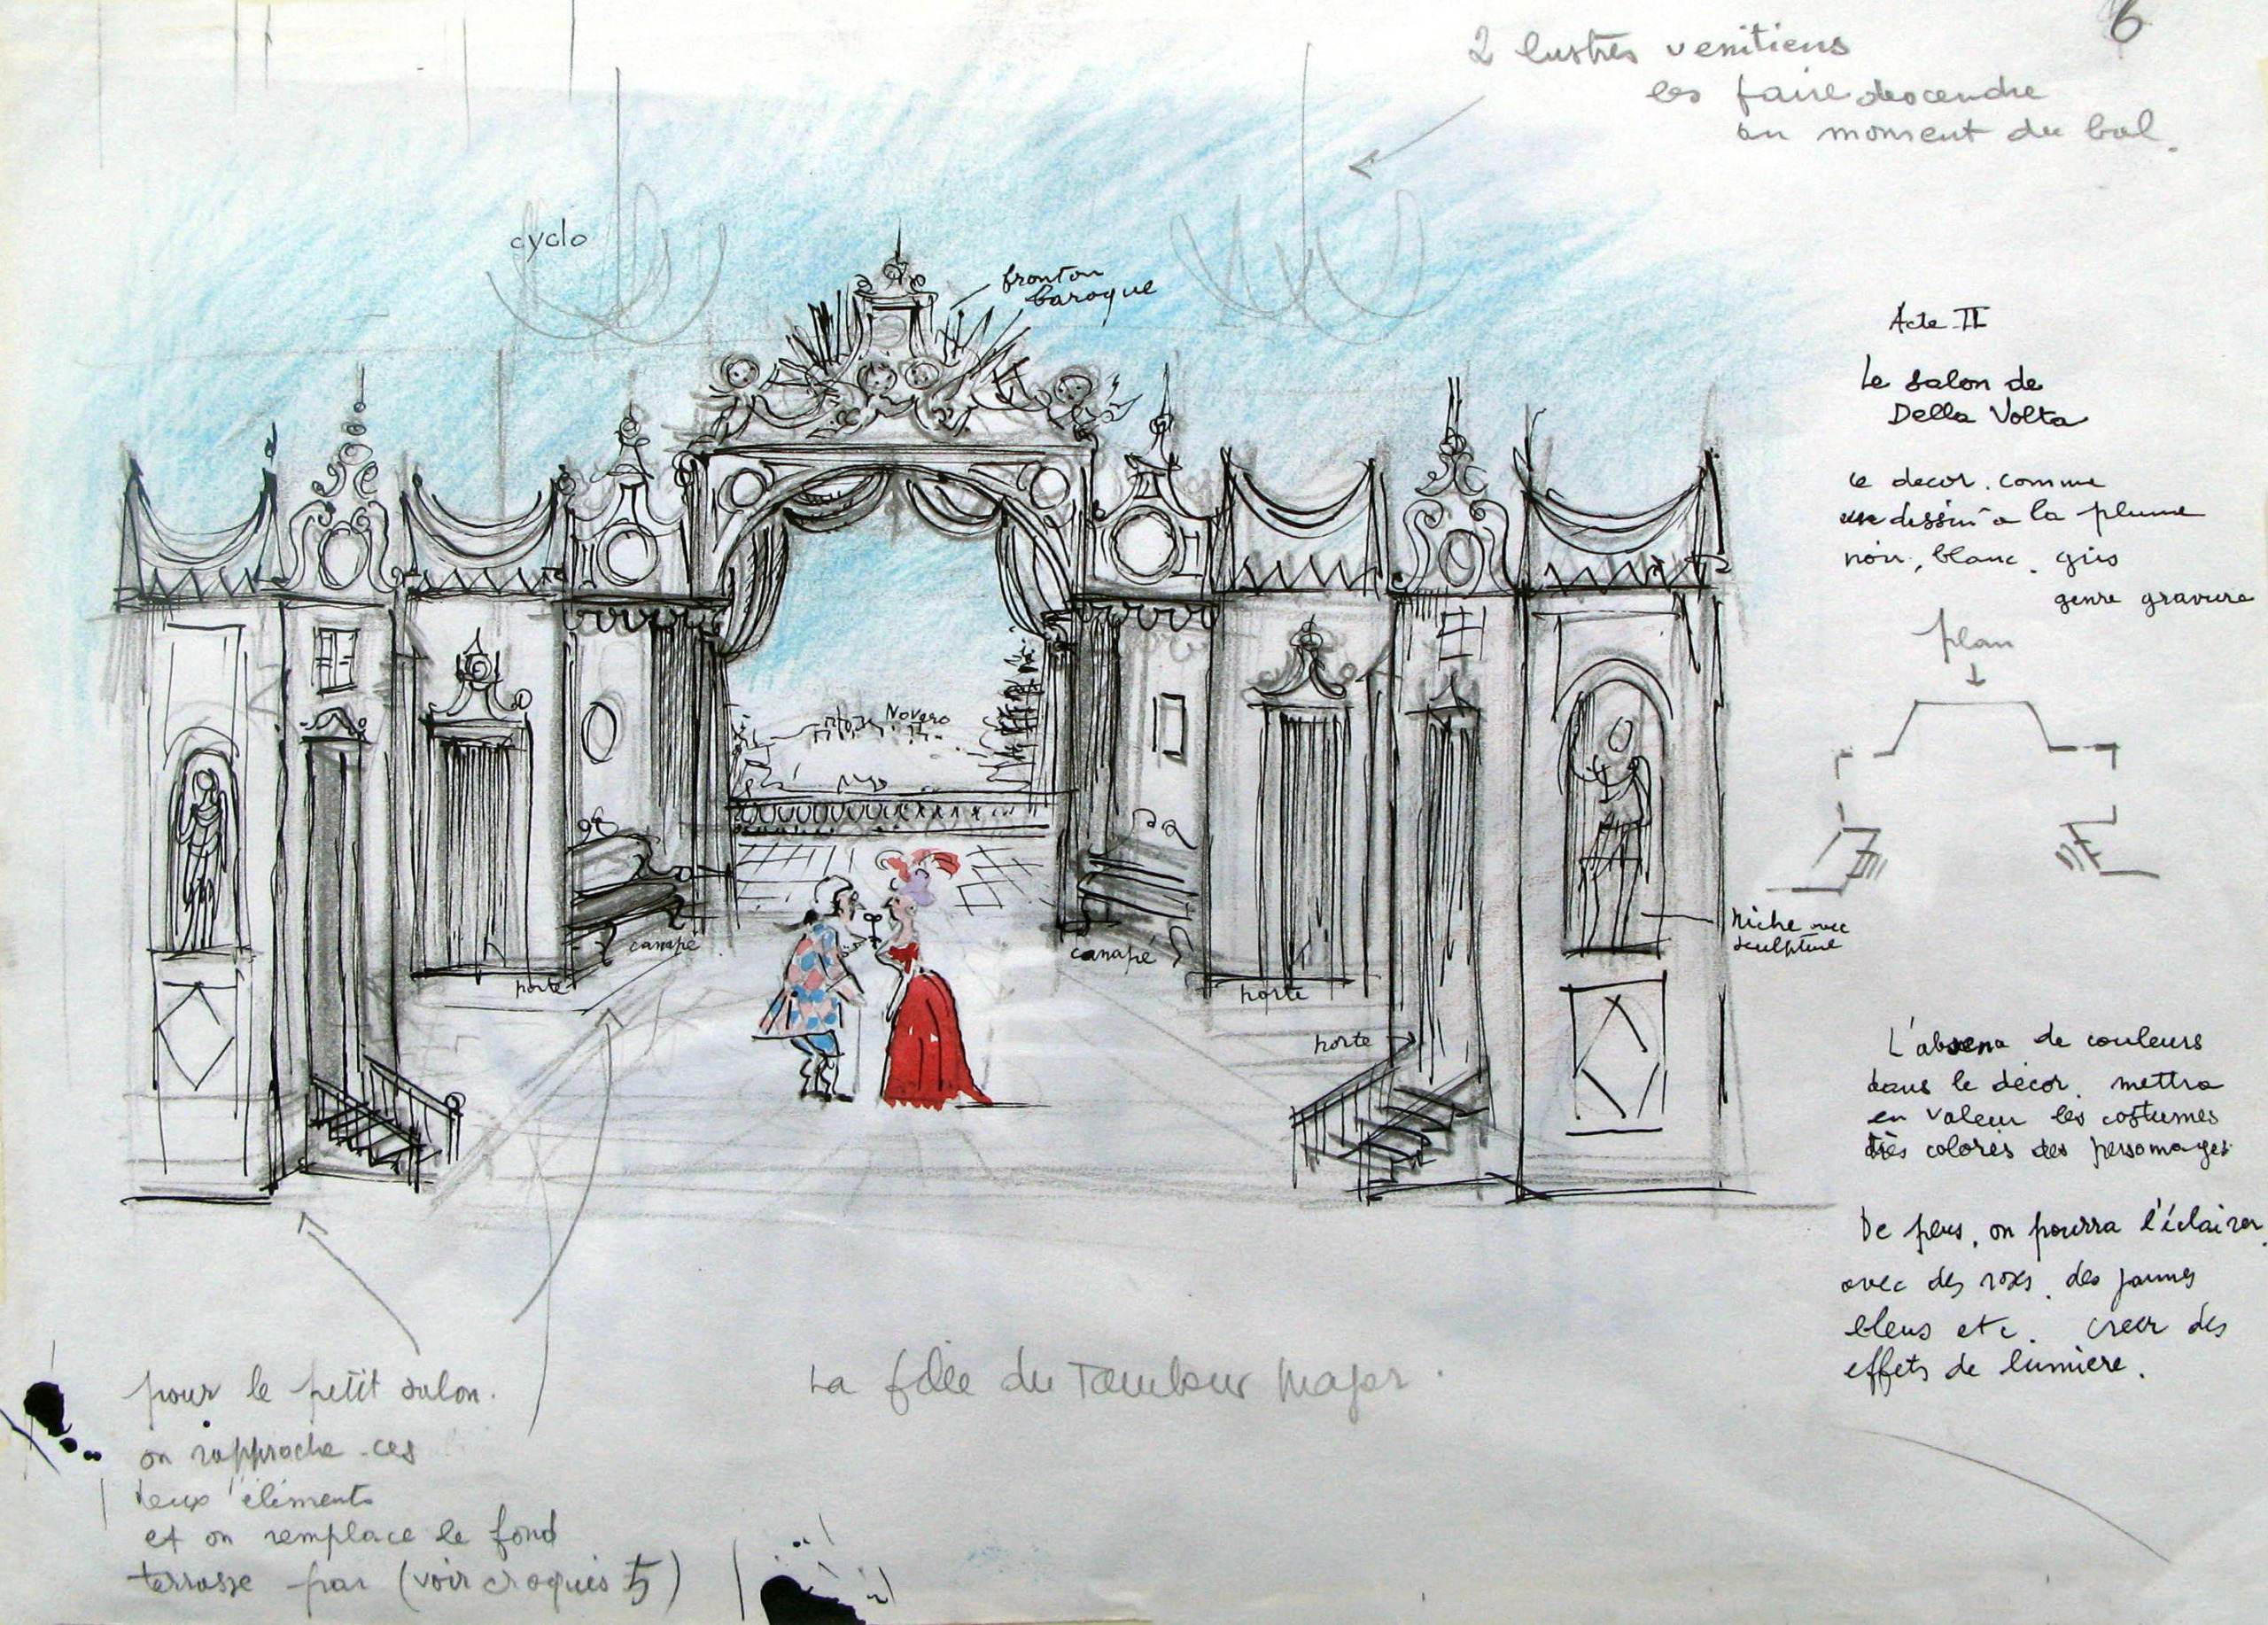 6
2 lustres venitiens
les faire descendre
au moment du bal.
cyclo
fronton
baroque
Acte II
Le salon de
Della Volta
ce decor. comme
dessin a la plume
noir, blanc. gris
genre gravure
plan
Novaro
canapé
canapé
porte
porte
porte
Niche avec
sculpture
L'absence de couleurs
dans le décor. mettra
en valeur les costumes
très colorés des personnages
De plus, on pourra l'éclairer
avec des roses. des jaunes
bleus etc. creer des
effets de lumière.
La fille du Tambour Major.
pour le petit salon.
on rapproche ces
deux éléments
et on remplace le fond
terrasse par (voir croquis 5)